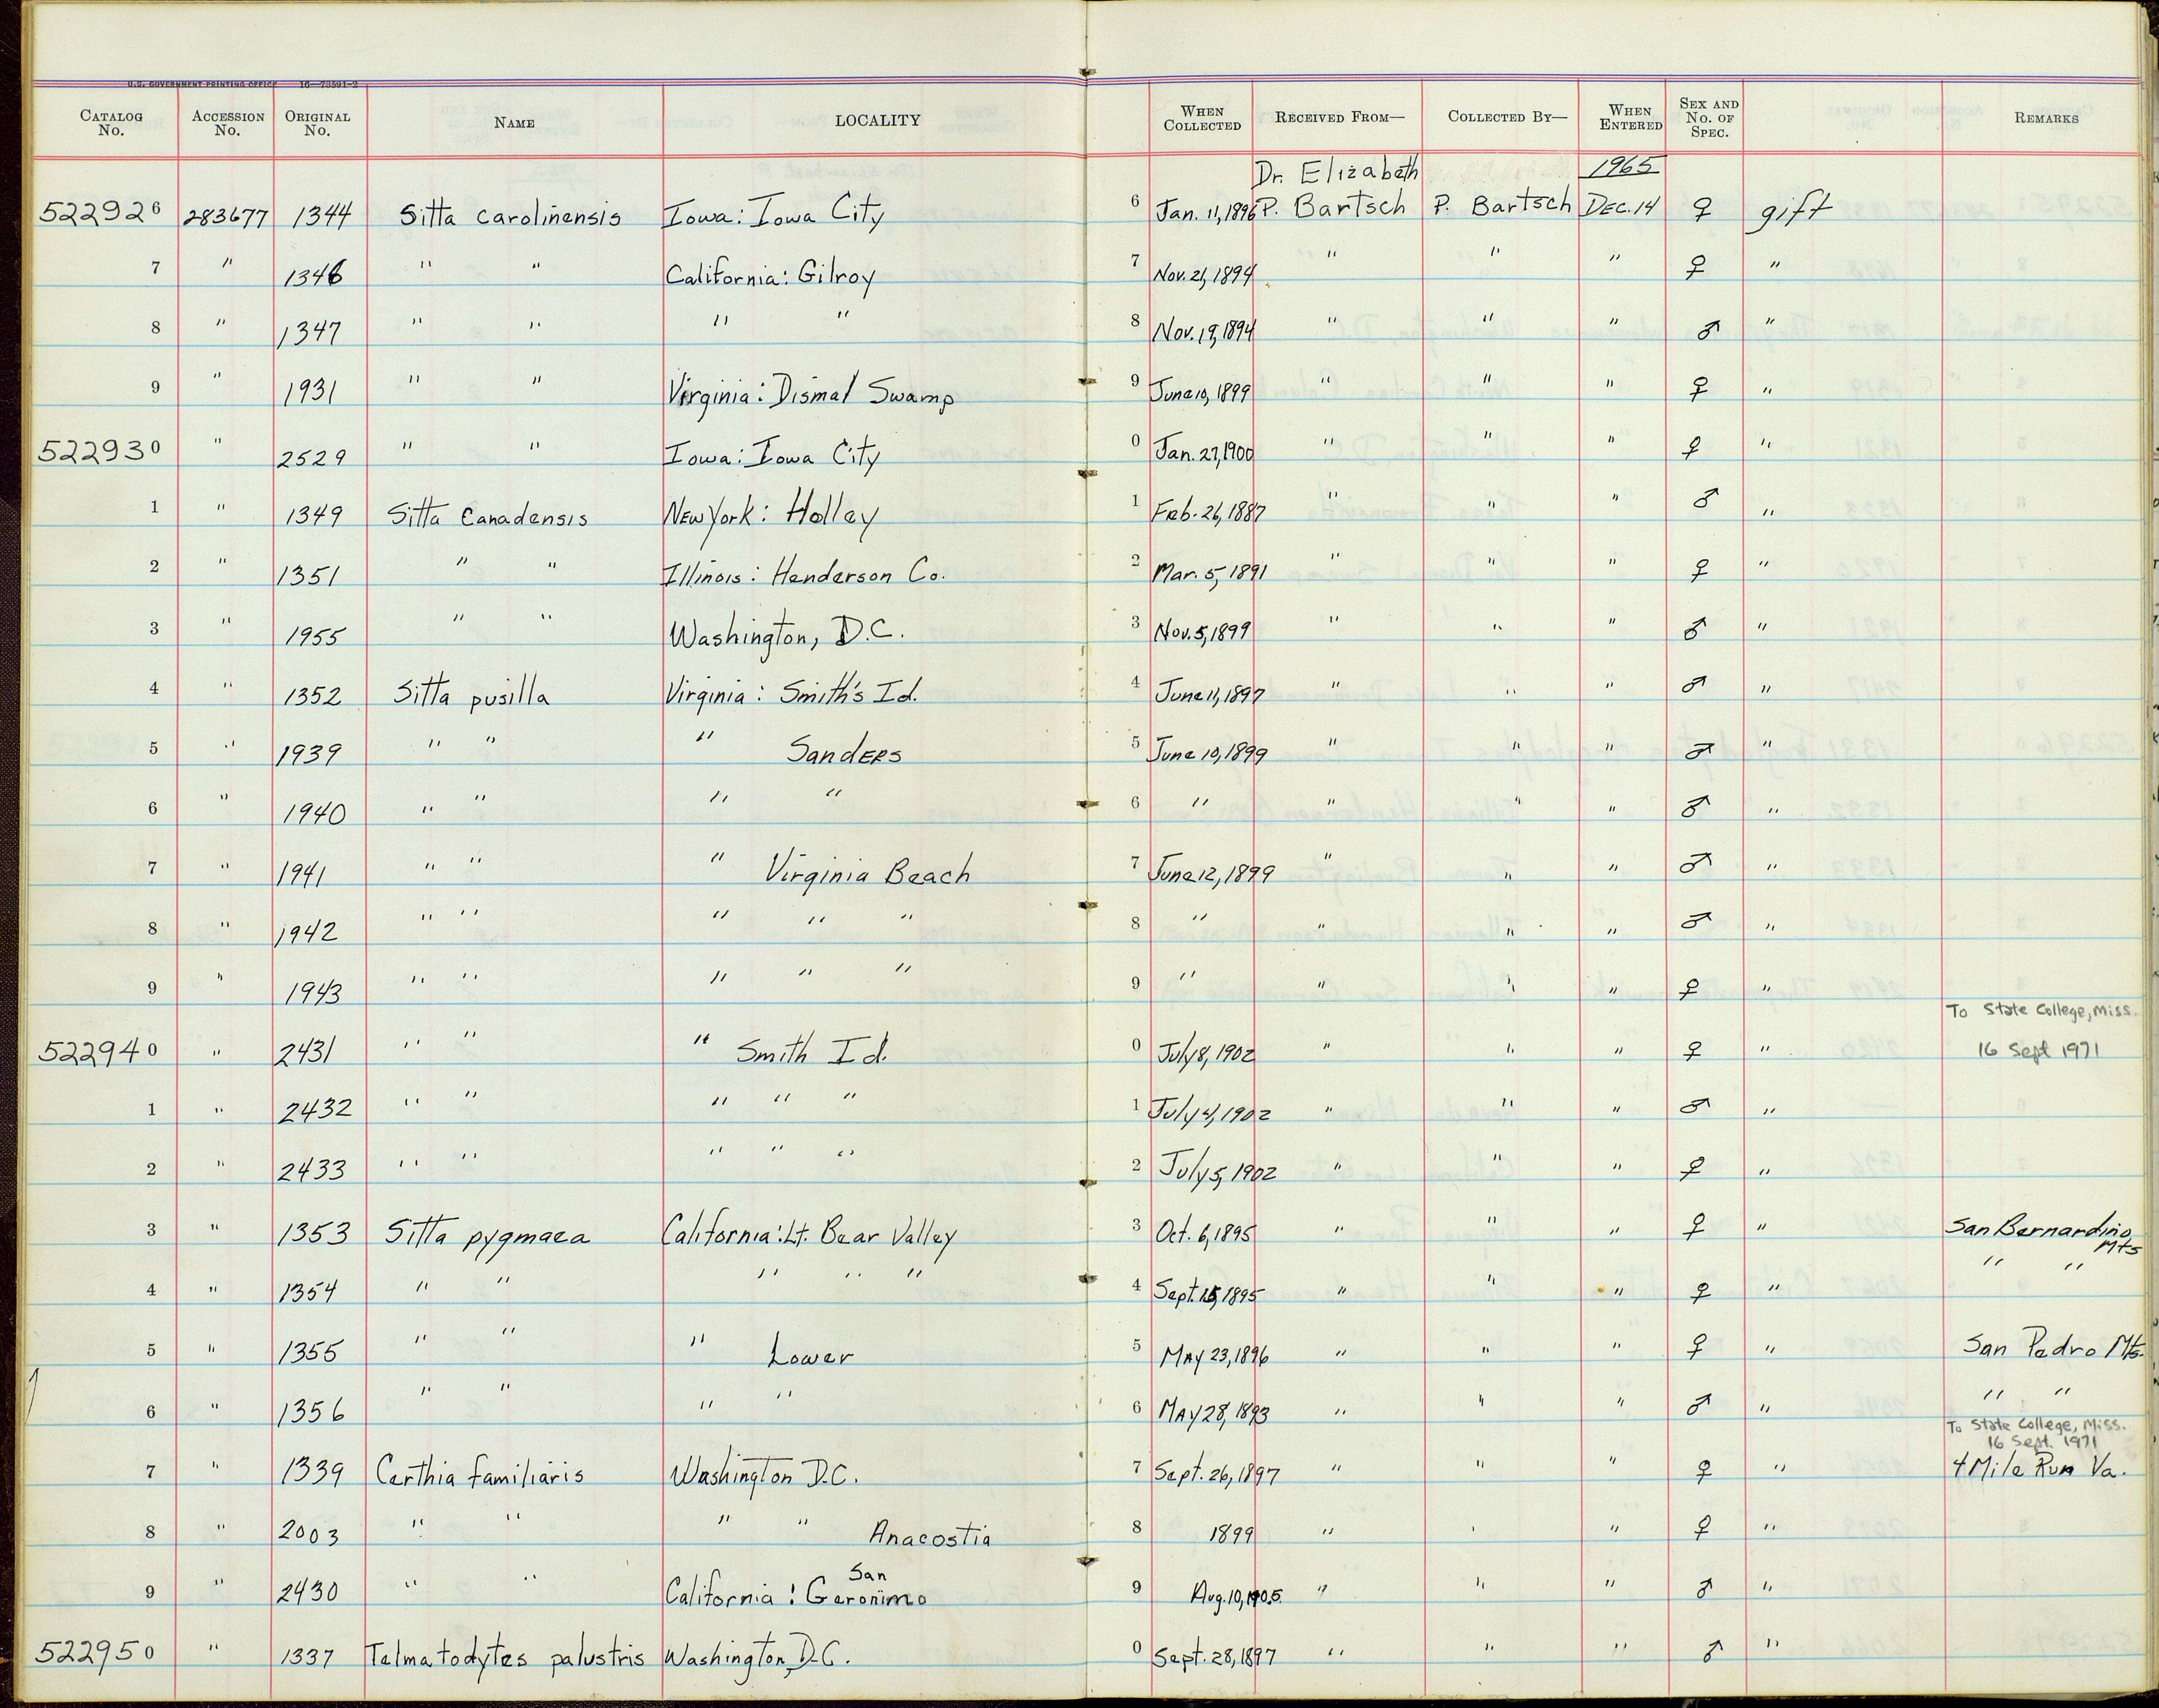 U.S. GOVERNMENT PRINTING OFFICE 16—73591-2
CATALOG No. ACCESSION No. ORIGINAL No. NAME LOCALITY WHEN COLLECTED RECEIVED FROM— COLLECTED BY— WHEN ENTERED SEX AND No. OF SPEC. REMARKS
Dr. Elizabeth 1965
522926 283677 1344 Sitta carolinensis Iowa: Iowa City 6 Jan. 11, 1896 P. Bartsch P. Bartsch DEC. 14 ♀ gift
7 " 1346 " " California: Gilroy 7 Nov. 21, 1894 " " " ♀ "
8 " 1347 " " " " 8 Nov. 19, 1894 " " " ♂ "
9 " 1931 " " Virginia: Dismal Swamp 9 June 10, 1899 " " " ♀ "
522930 " 2529 " " Iowa: Iowa City 0 Jan. 27, 1900 " " " ♀ "
1 " 1349 Sitta canadensis New York: Holley 1 Feb. 26, 1887 " " " ♂ "
2 " 1351 " " Illinois: Henderson Co. 2 Mar. 5, 1891 " " " ♀ "
3 " 1955 " " Washington, D.C. 3 Nov. 5, 1899 " " " ♂ "
4 " 1352 Sitta pusilla Virginia: Smith's Id. 4 June 11, 1897 " " " ♂ "
5 " 1939 " " " Sanders 5 June 10, 1899 " " " ♂ "
6 " 1940 " " " " 6 " " " " ♂ "
7 " 1941 " " " Virginia Beach 7 June 12, 1899 " " " ♂ "
8 " 1942 " " " " " 8 " " " " ♂ "
9 " 1943 " " " " " 9 " " " " ♀ "
To State College, Miss.
522940 " 2431 " " " Smith Id. 0 July 8, 1902 " " " ♀ " 16 Sept 1971
1 " 2432 " " " " " 1 July 4, 1902 " " " ♂ "
2 " 2433 " " " " " 2 July 5, 1902 " " " ♀ "
3 " 1353 Sitta pygmaea California: Lt. Bear Valley 3 Oct. 6, 1895 " " " ♀ " San Bernardino Mts
4 " 1354 " " " " " 4 Sept. 15, 1895 " " " ♀ " " "
5 " 1355 " " " Lower 5 MAY 23, 1896 " " " ♀ " San Pedro Mts.
6 " 1356 " " " " 6 MAY 28, 1893 " " " ♂ " " "
To State College, Miss.
16 Sept. 1971
7 " 1339 Certhia familiaris Washington D.C. 7 Sept. 26, 1897 " " " ♀ " 4 Mile Run Va.
8 " 2003 " " " " Anacostia 8 1899 " ' " ♀ "
San
9 " 2430 " " California: Geronimo 9 Aug. 10, 1905. " " " ♂ "
522950 " 1337 Telmatodytes palustris Washington, D.C. 0 Sept. 28, 1897 " " " ♂ "